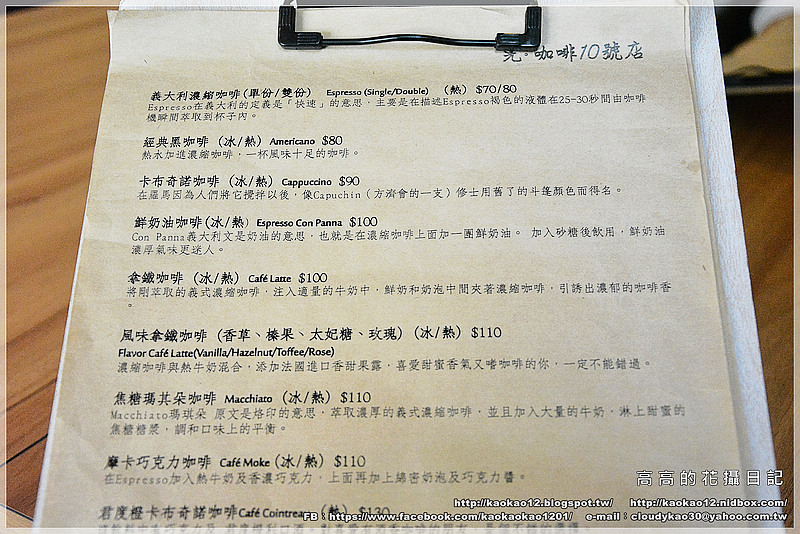 咖啡10號店
義大利濃縮咖啡(單份/雙份) Espresso (Single/Double) (熱) $70/80
Espresso在義大利的定義是「快速」的意思，主要是在描述Espresso褐色的液體在25-30秒間由咖啡
機瞬間萃取到杯子內。
經典黑咖啡 (冰/熱) Americano $80
熱水加進濃縮咖啡，一杯風味十足的咖啡。
卡布奇諾咖啡 (冰/熱) Cappuccino $90
在羅馬因為人們將它攪拌以後，像Capuchin（方濟會的一支）修士用舊了的斗蓬顏色而得名。
鮮奶油咖啡(冰/熱) Espresso Con Panna $100
Con Panna義大利文是奶油的意思，也就是在濃縮咖啡上面加一團鮮奶油。 加入砂糖後飲用，鮮奶油
濃厚氣味更迷人。
拿鐵咖啡 (冰/熱) Café Latte $100
將剛萃取的義式濃縮咖啡，注入適量的牛奶中，鮮奶和奶泡中間夾著濃縮咖啡，引誘出濃郁的咖啡香
。
風味拿鐵咖啡 (香草、榛果、太妃糖、玫瑰) (冰/熱) $110
Flavor Café Latte(Vanilla/Hazelnut/Toffee/Rose)
濃縮咖啡與熱牛奶混合，添加法國進口香甜果露，喜愛甜蜜香氣又嗜咖啡的你，一定不能錯過。
焦糖瑪其朵咖啡 Macchiato (冰/熱) $110
Macchiato瑪琪朵 原文是烙印的意思，萃取濃厚的義式濃縮咖啡，並且加入大量的牛奶，淋上甜蜜的
焦糖糖漿，調和口味上的平衡。
摩卡巧克力咖啡 Café Moke (冰/熱) $110
在Espresso加入熱牛奶及香濃巧克力，上面再加上綿密奶泡及巧克力醬。
君度橙卡布奇諾咖啡 Café Cointreau (熱) $130
高高的花攝日記
http://kaokao12.blogspot.tw/ http://kaokao12.nidbox.com/
FB：https://www.facebook.com/kaokaokao1201/ e-mail：cloudykao30@yahoo.com.tw